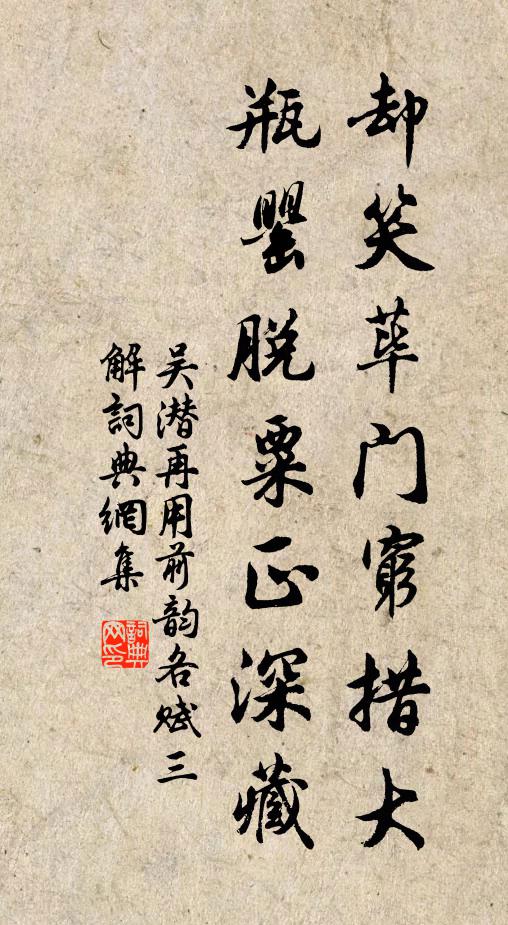 却笑荜门穷措大
瓶罂脱粟正深藏
吴潜再用前韵各赋三
解詞典網集
詞典網印